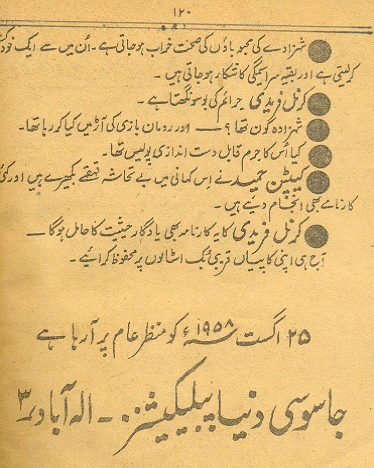 ۱۲۰
شہزادے کی محبوباؤں کی صحت خراب ہو جاتی ہے۔ اُن میں سے ایک خودکشی
کرلیتی ہے اور بقیہ سراسیمگی کا شکار ہو جاتی ہیں۔
کرنل فریدی جرائم کی بو سونگھتا ہے۔
شہزادہ کون تھا؟ — اور رومان بازی کی آڑ میں کیا کر رہا تھا۔
کیا اُس کا جرم قابل دست اندازی پولیس تھا۔
کیپٹن حمید نے اِس کہانی میں بے تحاشہ قہقہے بکھیرے ہیں اور کئی
کارنامے بھی انجام دیئے ہیں۔
کرنل فریدی کا یہ کارنامہ بھی یادگار حیثیت کا حامل ہوگا۔
آج ہی اپنی کاپیاں قریبی بُک اسٹالوں پر محفوظ کرائیے۔
۲۵ اگست ۱۹۵۸ء کو منظر عام پر آ رہا ہے
جاسوسی دنیا پبلیکیشنز۔ الہ آباد ۳